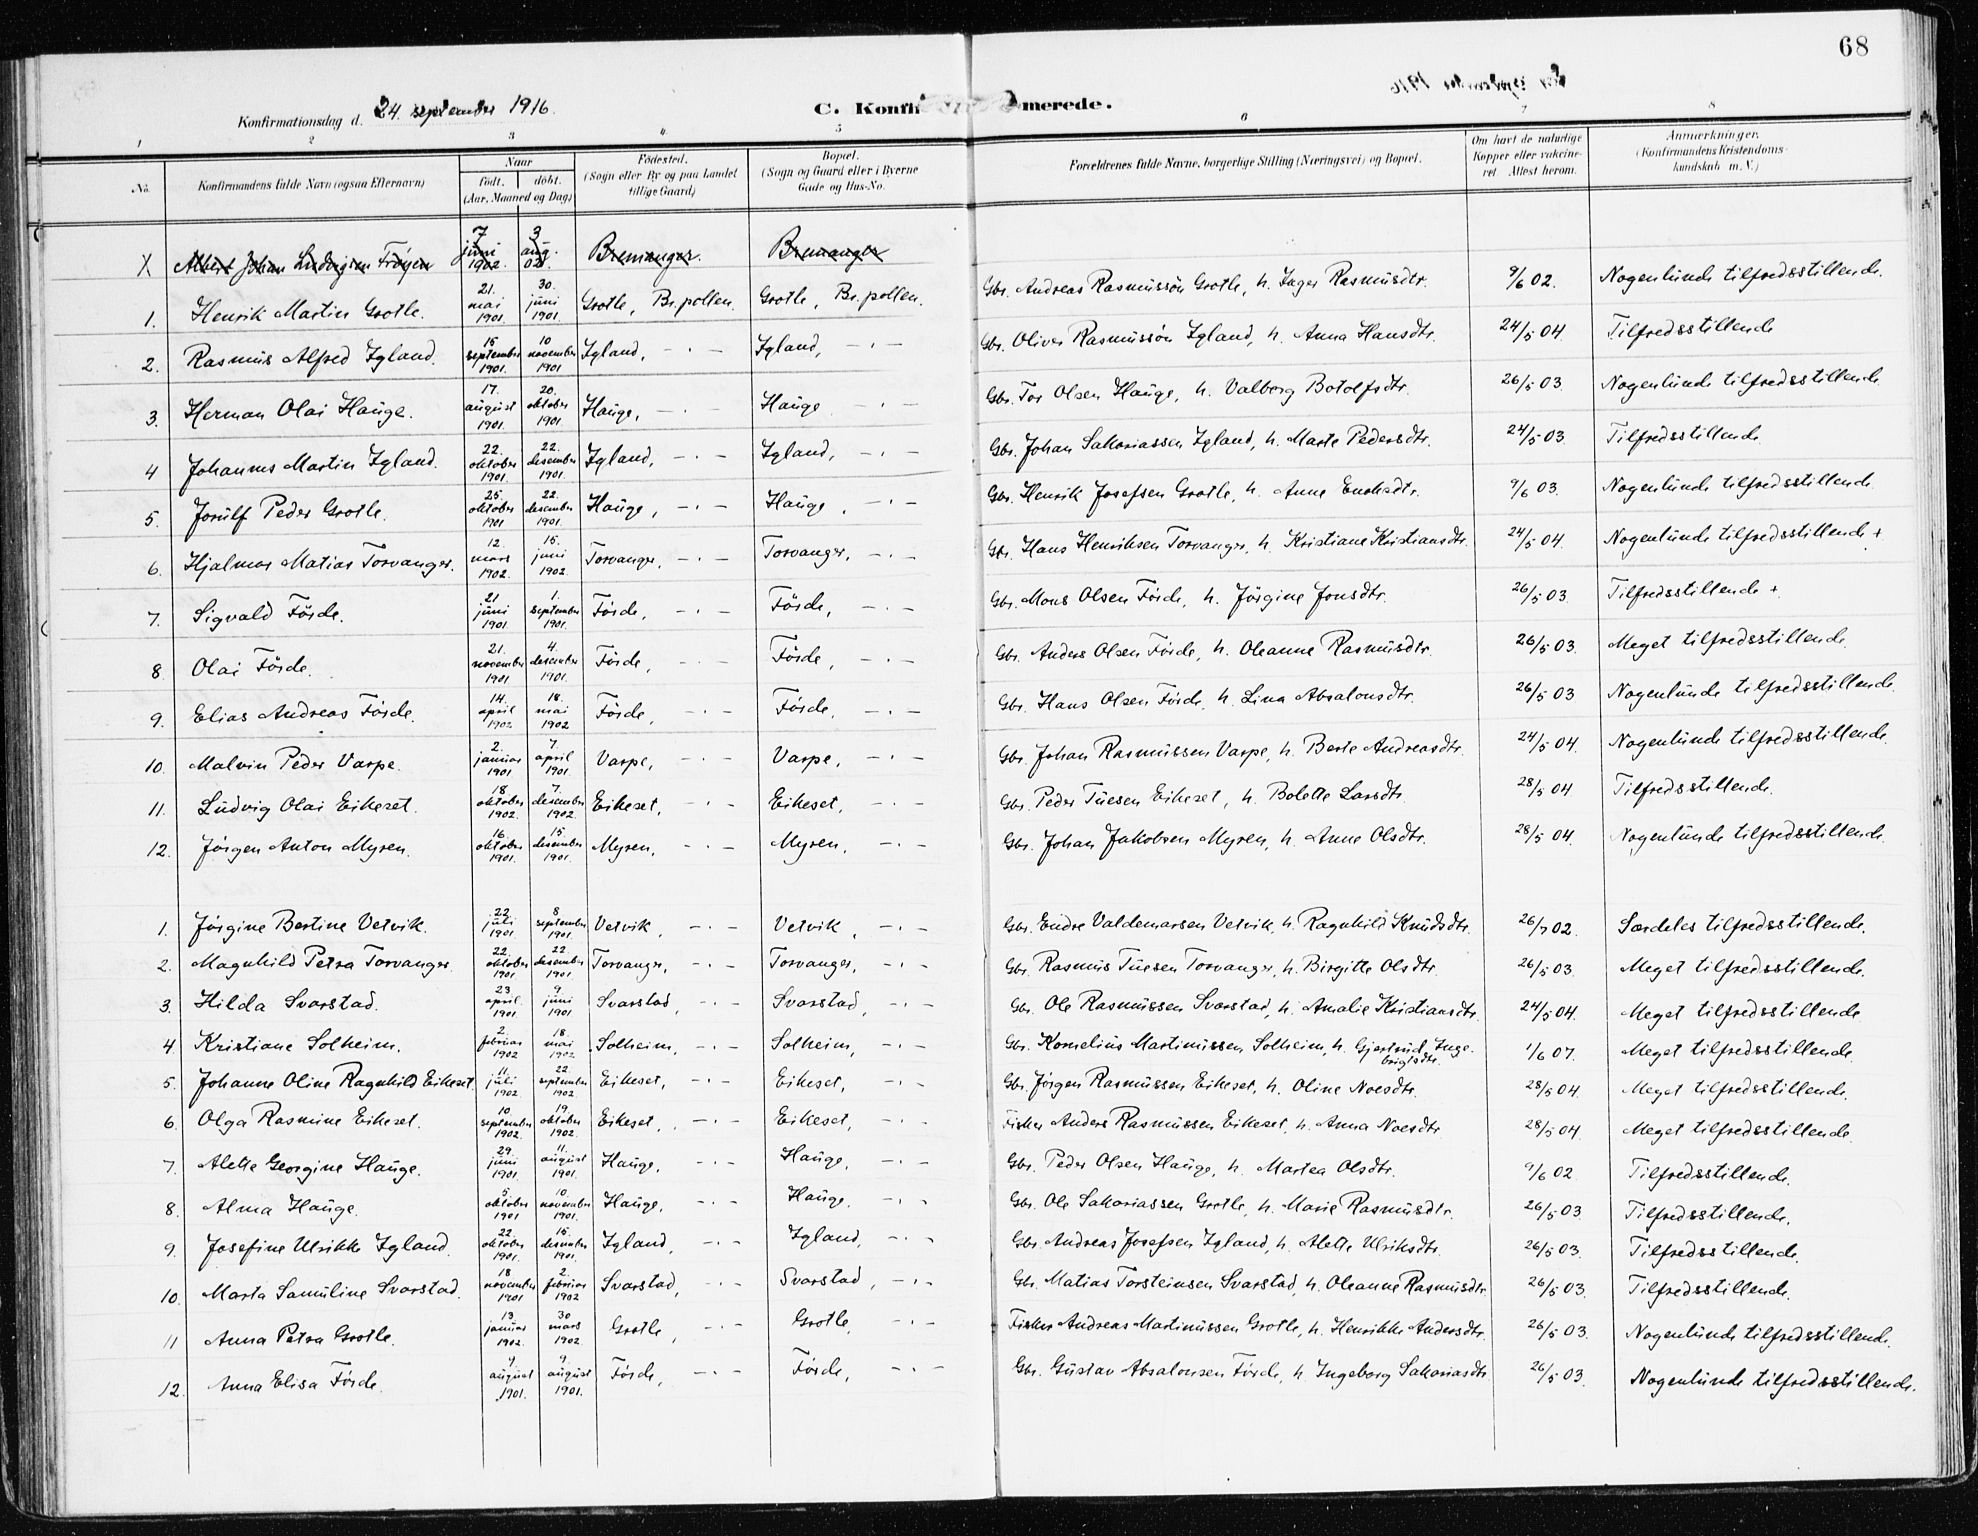 68
Konfirmationsdag d. 24. september 1916.
C. Konfir merede.
1 2 3 4 5 6 7 8
No. Konfirmandens fulde Navn (ogsaa Efternavn) Naar født. døbt. (Aar, Maaned og Dag) Fødested. (Sogn eller By og paa Landet tillige Gaard) Bopæl. (Sogn og Gaard eller i Byerne Gade og Hus-No. Forældrenes fulde Navne, borgerlige Stilling (Næringsvei) og Bopæl. Om havt de naturlige Kopper eller vakcineret. Attest herom. Anmærkninger. (Konfirmandens Kristendomskundskab m. V.)
X Albert Johan Ludvigsen Frøyen 7 juni 1902. 3 aug. 02. Bremanger. Bremanger
1. Henrik Martin Grotle. 21. mai 1901. 30. juni 1901. Grotle, Br.pollen. Grotle, Br.pollen. Gbr. Andreas Rasmussøn Grotle, h. Inger Rasmusdtr. 9/6 02. Nogenlunde tilfredsstillende.
2. Rasmus Alfred Igland. 15 september 1901. 10 november 1901 Igland, -.- Igland, -.- Gbr. Oliver Rasmussøn Igland, h. Anna Hansdtr. 24/5 04. Tilfredsstillende
3. Herman Olai Hauge. 17. august 1901. 20. oktober 1901. Hauge, -.- Hauge -.- Gbr. Tor Olsen Hauge, h. Valborg Botolfsdtr. 26/5 03. Nogenlunde tilfredsstillende.
4 Johannes Martin Igland. 22. oktober 1901. 22. desember 1901. Igland, -.- Igland, -.- Gbr. Johan Sakariassen Igland, h. Marte Pedersdtr. 24/5 03. Tilfredsstillende.
5. Jorulf Peder Grotle. 25. oktober 1901 22. desember 1901. Hauge, -.- Hauge, -.- Gbr. Henrik Josefsen Grotle, h. Anne Enoksdtr. 9/6 03. Nogenlunde tilfredsstillende.
6. Hjalmar Matias Torvanger. 12. mars 1902. 15. juni 1902. Torvanger, -.- Torvanger, -.- Gbr. Hans Henriksen Torvanger, h. Kristiane Kristiansdtr. 24/5 04. Nogenlunde tilfredsstillende +
7. Sigvald Førde. 21 juni 1901. 1. september 1901. Førde, -.- Førde, -.- Gbr. Mons Olsen Førde, h. Jørgine Jonsdtr. 26/5 03. Tilfredsstillende +.
8 Olai Førde. 21. november 1901 4. desember 1901. Førde, -.- Førde, -.- Gbr. Anders Olsen Førde, h. Oleanne Rasmusdtr. 26/5 03. Meget tilfredsstillende.
9. Elias Andreas Førde. 14. april 1902 18. mai 1902 Førde, -.- Førde, -.- Gbr. Hans Olsen Førde, h. Lina Absalonsdtr. 26/5 03 Nogenlunde tilfredsstillende.
10. Malvin Peder Varpe. 2. januar 1901 7. april 1901. Varpe, -.- Varpe, -.- Gbr. Johan Rasmussen Varpe, h. Berte Andreasdtr. 24/5 04. Nogenlunde tilfredsstillende.
11. Ludvig Olai Eikeset. 18 oktober 1902. 7. desember 1902. Eikeset, -.- Eikeset, -.- Gbr. Peder Tuesen Eikeset, h. Bolette Larsdtr. 28/5 04 Tilfredsstillende.
12. Jørgen Anton Myren. 16. oktober 1901. 15. desember 1901. Myren, -.- Myren, -.- Gbr. Johan Jakobsen Myren, h. Anne Olsdtr. 28/5 04. Nogenlunde tilfredsstillende.
1. Jørgine Bertine Vetvik. 22. juli 1901. 8 september 1901. Vetvik, -.- Vetvik, -.- Gbr. Endre Valdemarsen Vetvik, h. Ragnhild Knudsdtr. 26/7 02. Særdeles tilfredsstillende.
2. Magnhild Petra Torvanger. 22. oktober 1901 22. desember 1901. Torvanger, -.- Torvanger, -.- Gbr. Rasmus Tuesen Torvanger, h. Birgitte Olsdtr. 26/5 03. Meget tilfredsstillende.
3. Hilda Svarstad. 23. april. 1901. 9. juni 1901. Svarstad, -.- Svarstad, -.- Gbr. Ole Rasmussen Svarstad, h. Amalie Kristiansdtr. 24/5 04. Meget tilfredsstillende
4 Kristiane Solheim. 2. februar 1902 18. mai 1902. Solheim, -.- Solheim, -.- Gbr. Kornelius Martinussen Solheim, h. Gjertrud Ingebrigtsdtr. 1/6 07. Meget tilfredsstillende.
5. Johanne Oline Ragnhild Eikeset. 11. juli 1902. 22. september 1902. Eikeset, -.- Eikeset, -.- Gbr. Jørgen Rasmussen Eikeset, h. Oline Noesdtr. 28/5 04. Meget tilfredsstillende.
6. Olga Rasmine Eikeset. 10. september 1902. 19. oktober 1902. Eikeset, -.- Eikeset, -.- Fisker Anders Rasmussen Eikeset, h. Anna Noesdtr 28/5 04. Meget tilfredsstillende.
7. Alette Georgine Hauge. 29. juni 1901. 11. august 1901. Hauge, -.- Hauge, -.- Gbr. Peder Olsen Hauge, h. Martea Olsdtr. 9/6 02 Tilfredsstillende.
8. Alma Hauge. 5. oktober 1901 10. november 1901. Hauge, -.- Hauge. -.- Gbr. Ole Sakariassen Grotle, h. Marie Rasmusdtr. 26/5 03. Tilfredsstillende.
9. Josefine Ulrikke Igland. 22. oktober 1901. 15. desember 1901. Igland, -.- Igland, -.- Gbr. Andreas Josefsen Igland, h. Alette Ulriksdtr. 26/5 03. Tilfredsstillende.
10. Marta Samuline Svarstad. 18 november 1901 2. februar 1902 Svarstad, -.- Svarstad, -.- Gbr. Matias Torsteinsen Svarstad, h. Oleanne Rasmusdtr. 26/5 03. Tilfredsstillende.
11 Anna Petra Grotle. 13. januar 1902. 30 mars 1902. Grotle, -.- Grotle, -.- Fisker Andreas Martinussen Grotle, h. Henrikke Andersdtr. 26/5 03. Nogenlunde tilfredsstillende.
12. Anna Elisa Førde. 9. august 1901. 9. august 1901. Førde, -.- Førde, -.- Gbr. Gustav Absalonsen Førde, h. Ingeborg Sakariasdtr 26/5 03. Nogenlunde tilfredsstillende.